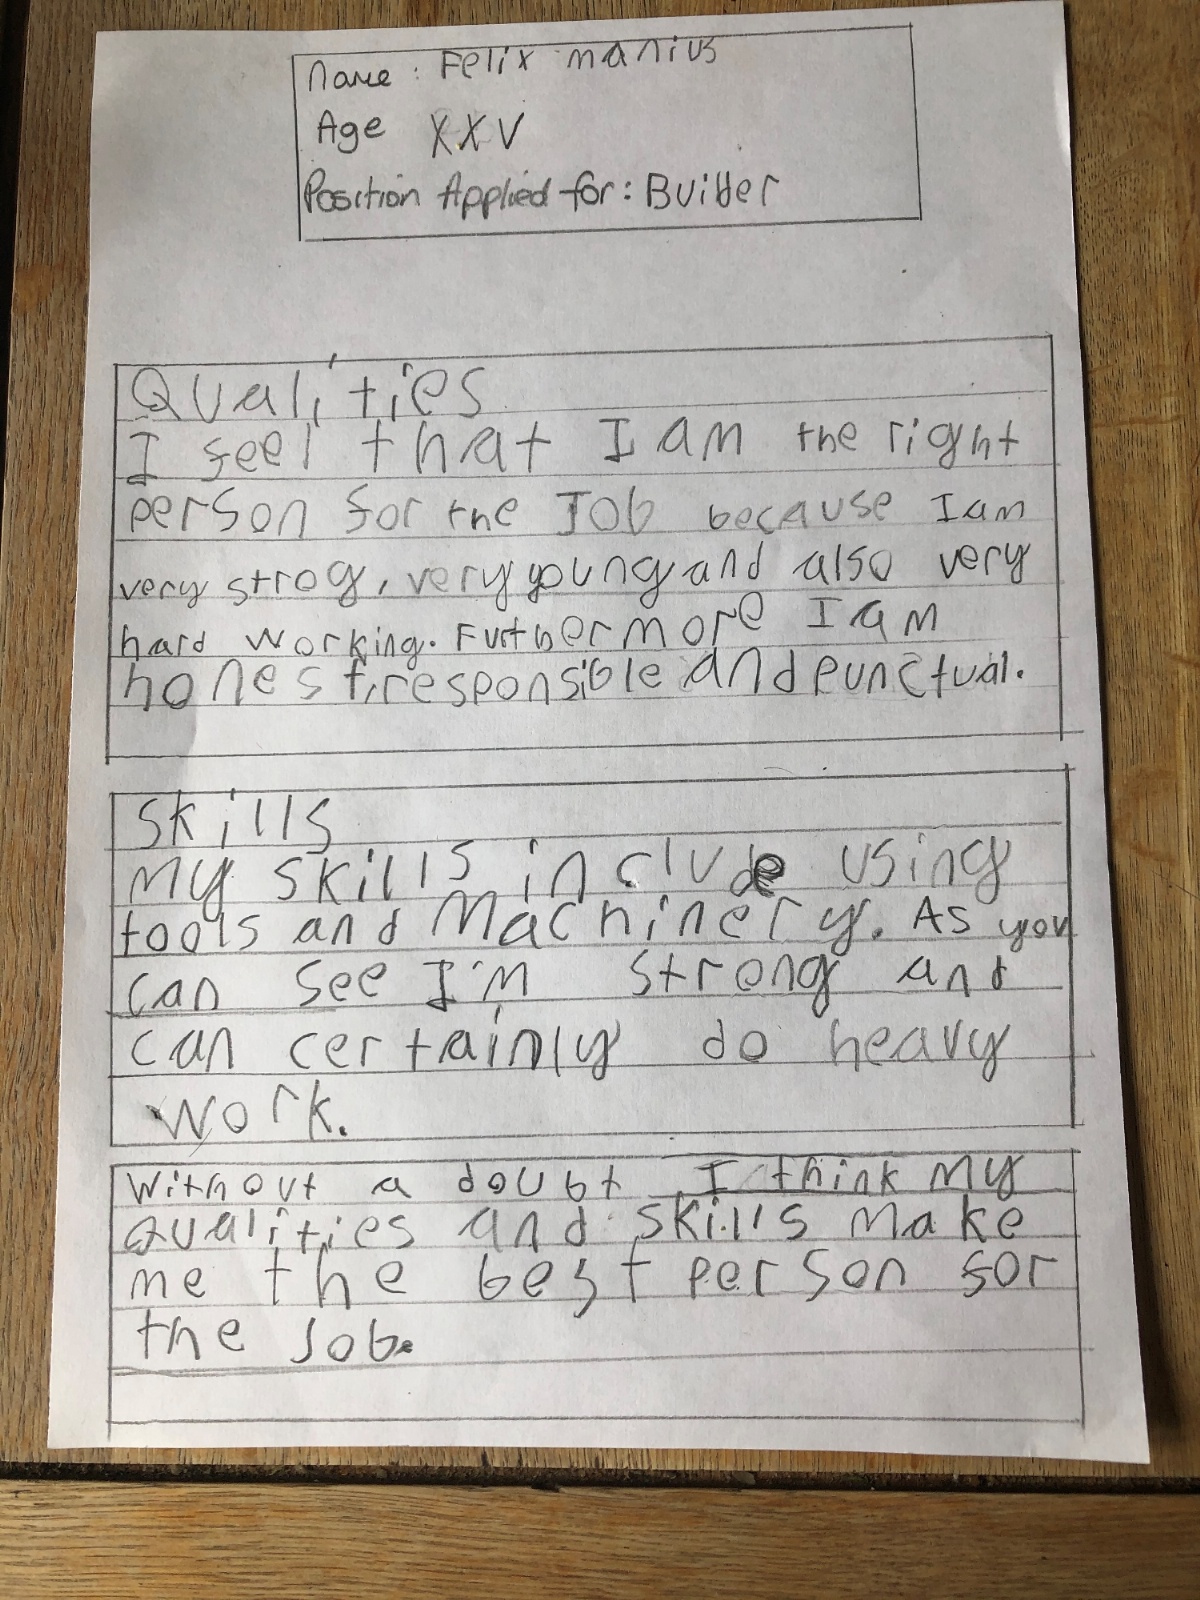 Name: Felix manius
Age XXV
Position Applied for: Builder
Qualities
I feel that I am the right
person for the Job because I am
very strog, very young and also very
hard working. Furthermore I am
honest, responsible and punctual.
Skills
My skills include using
tools and Machinery. As you
can see I'm strong and
can certainly do heavy
work.
Without a doubt I think My
Qualities and skills Make
me the best person for
the Job.